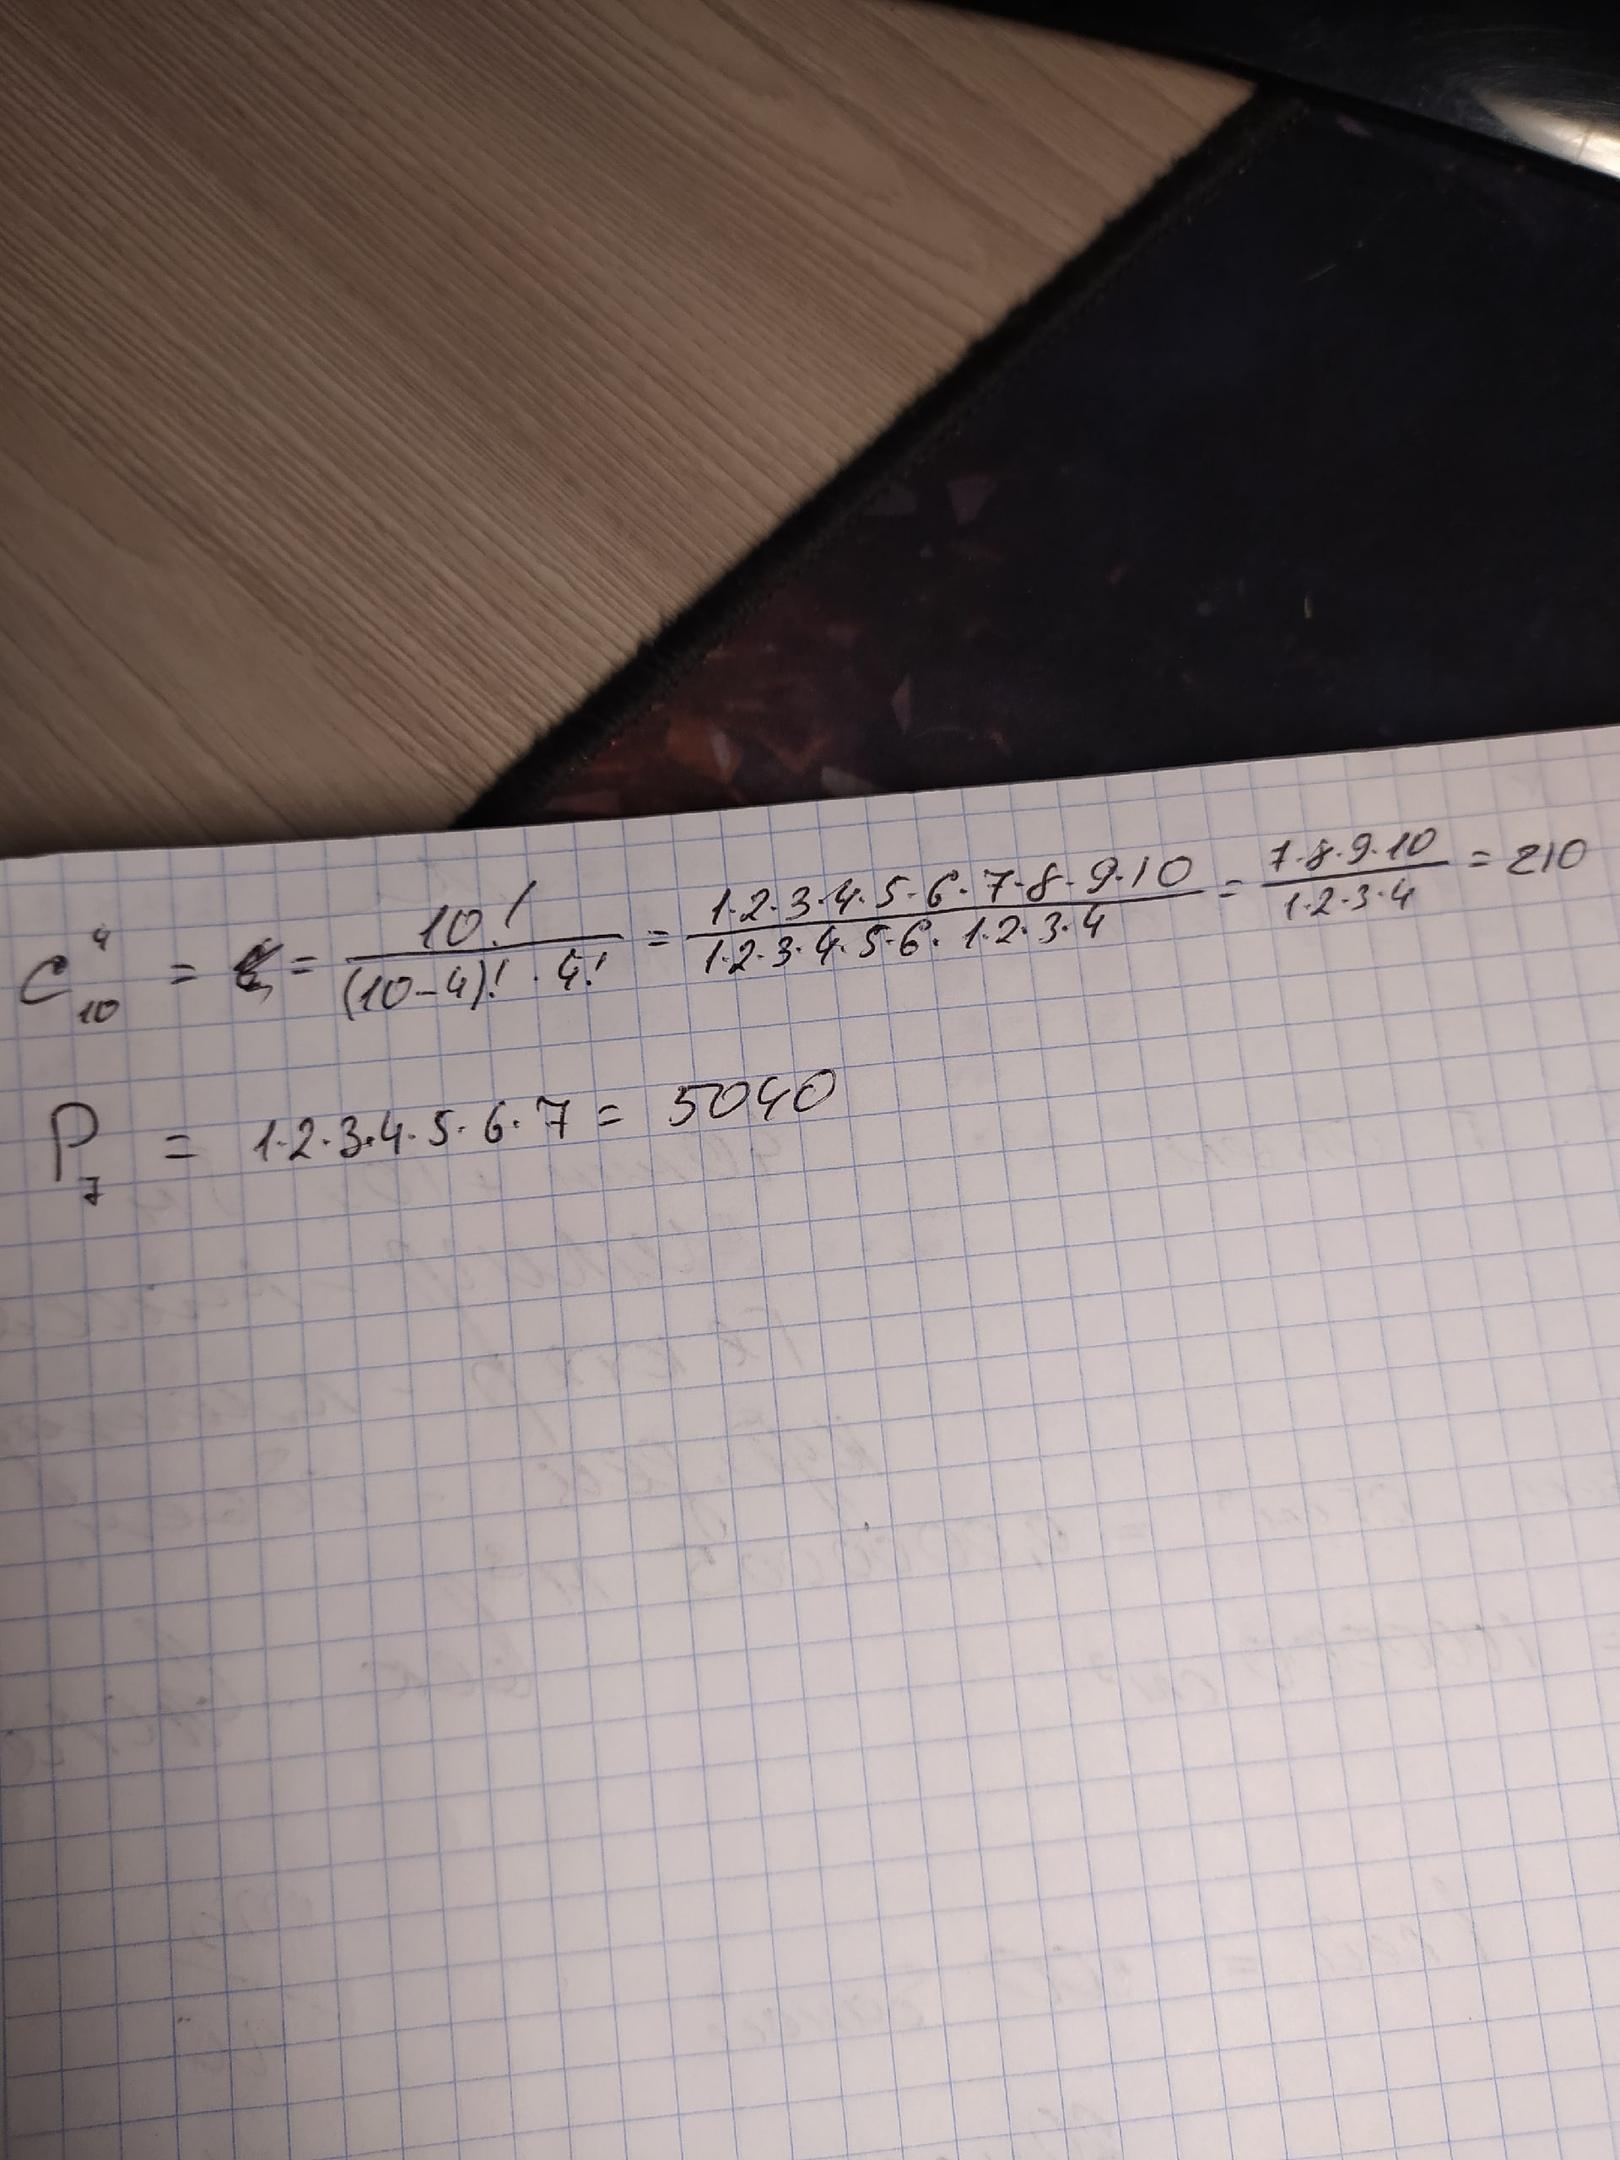 C₁₀⁴ = = 10! / (10-4)! · 4! = 1·2·3·4·5·6·7·8·9·10 / 1·2·3·4·5·6·1·2·3·4 = 7·8·9·10 / 1·2·3·4 = 210
P₇ = 1·2·3·4·5·6·7 = 5040